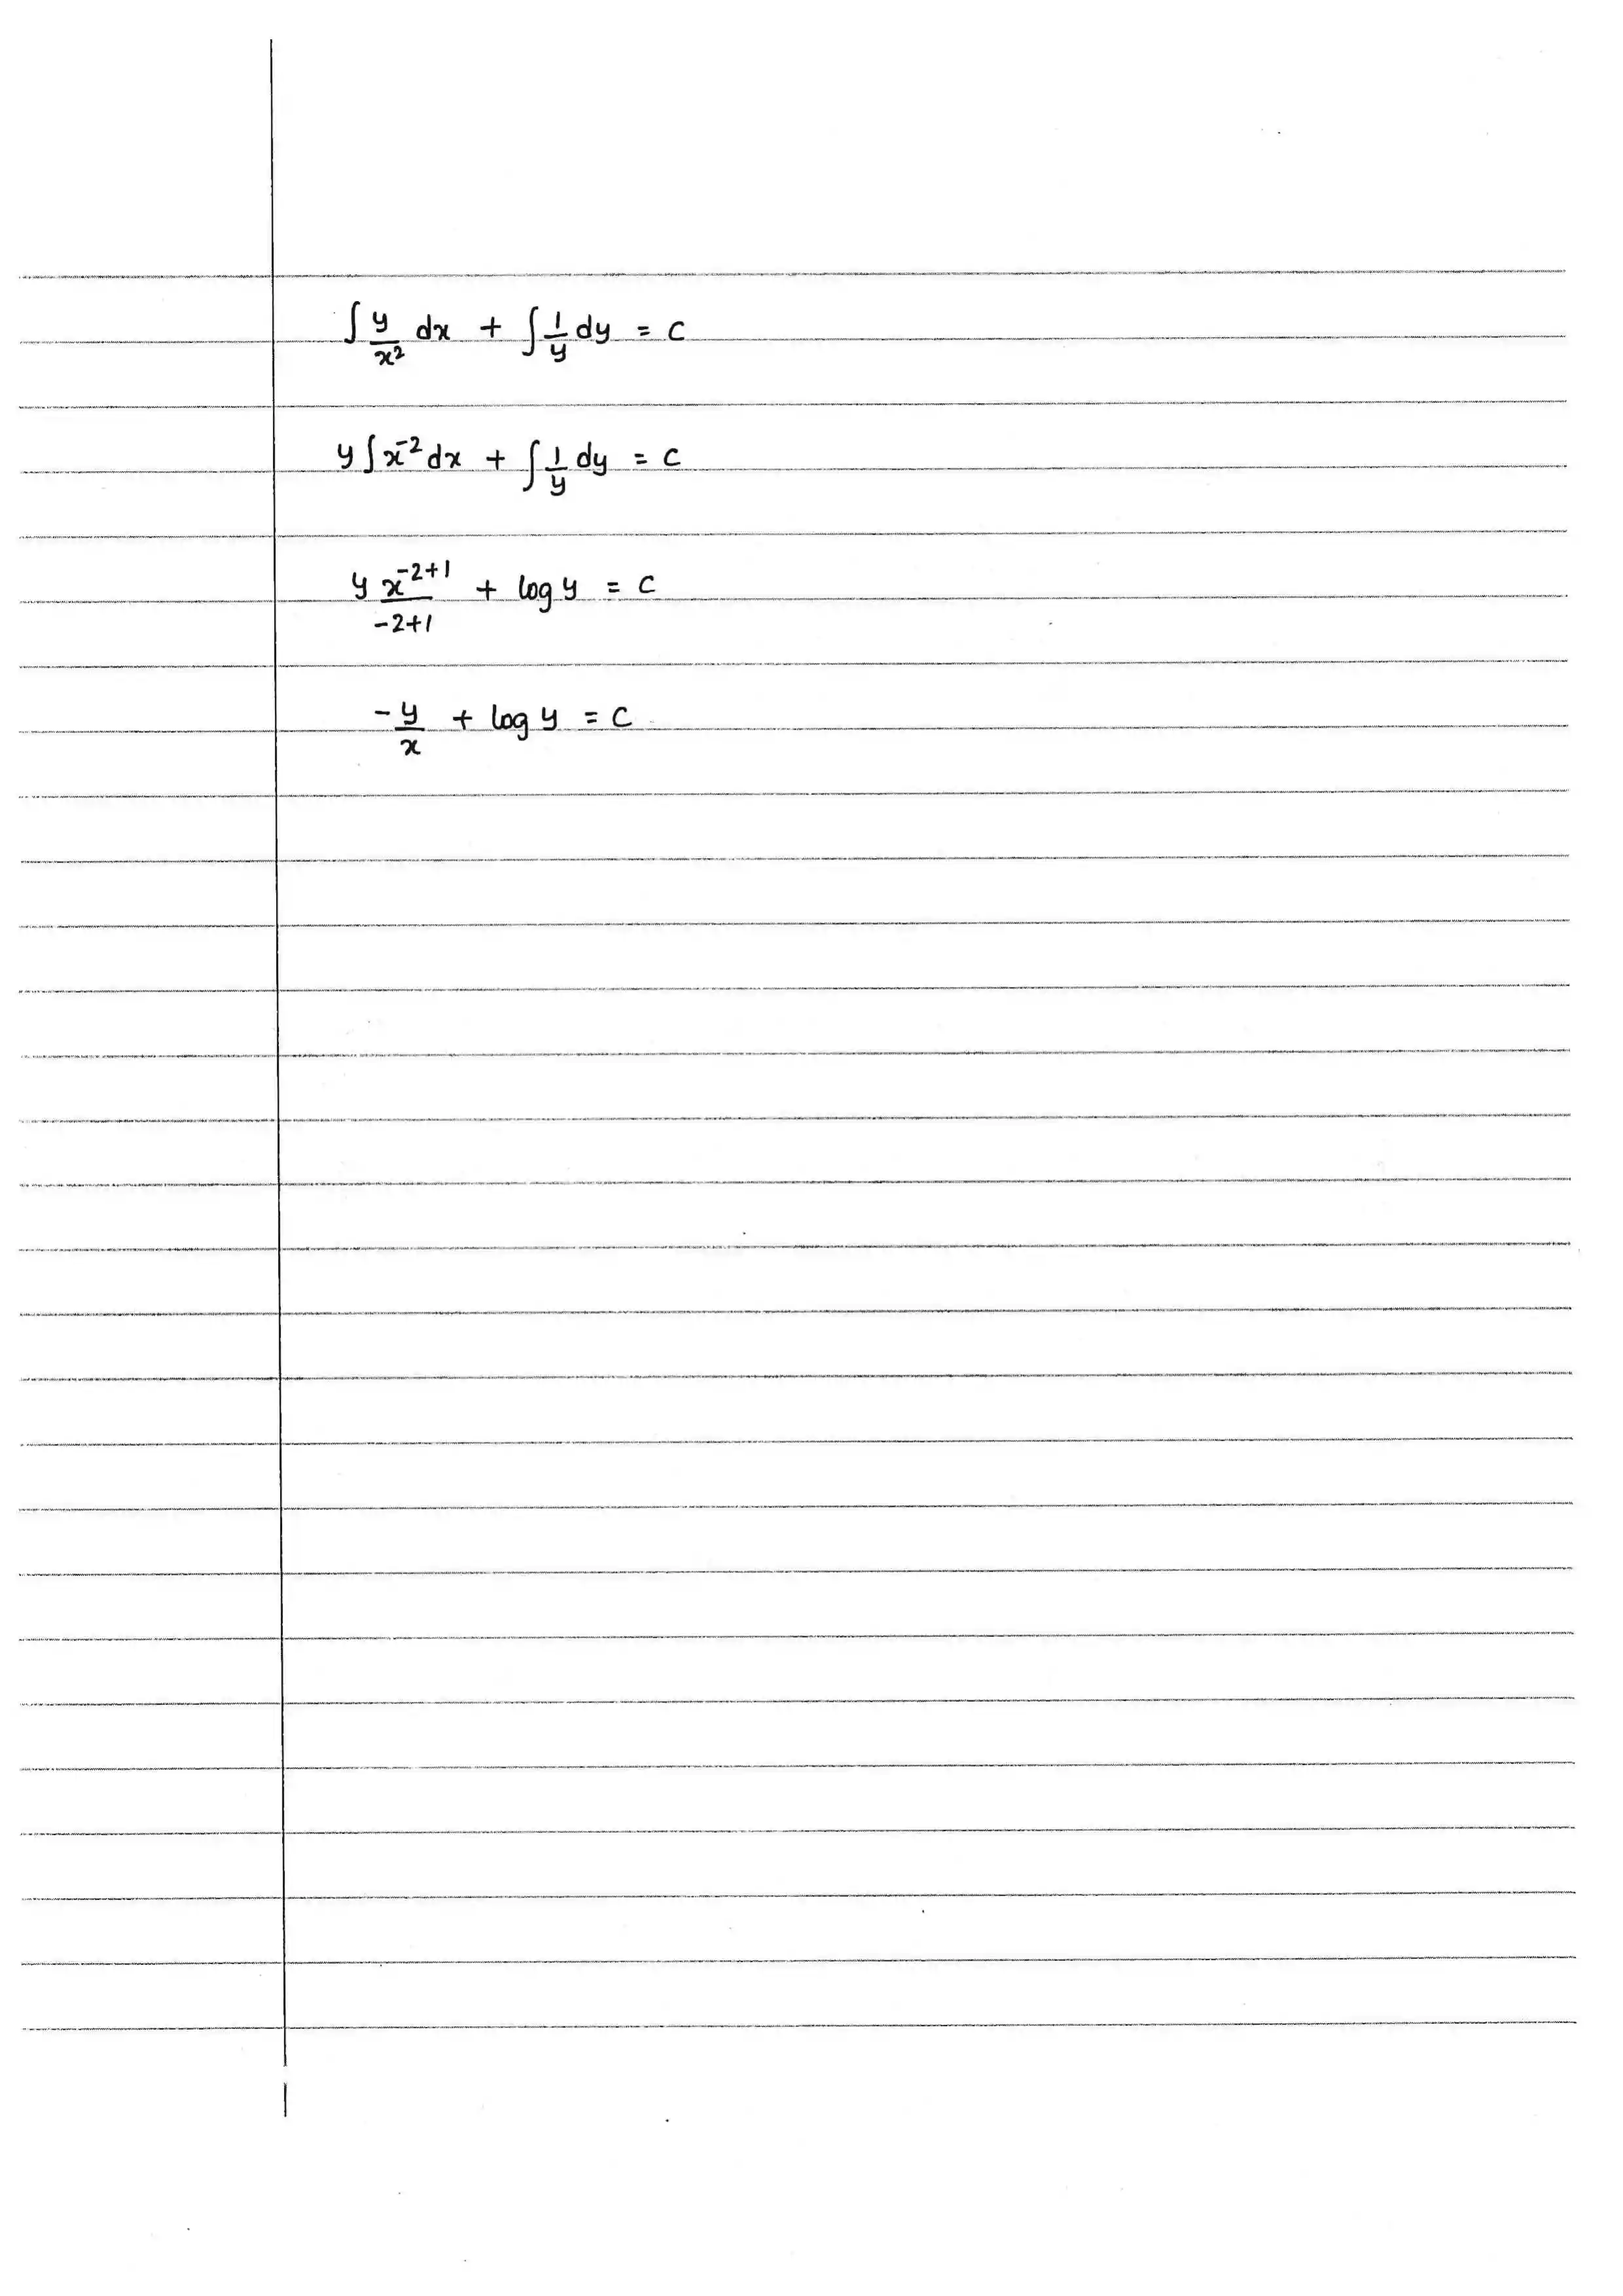 ∫ y/x² dx + ∫ 1/y dy = c
y ∫ x⁻² dx + ∫ 1/y dy = c
y x⁻²⁺¹/-2+1 + log y = c
-y/x + log y = c